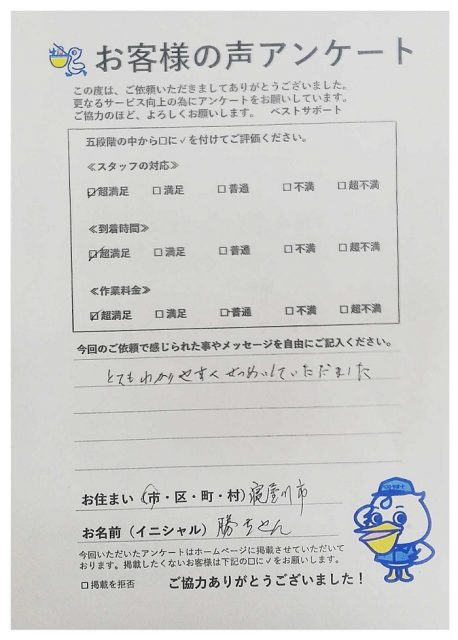 お客様の声アンケート
この度は、ご依頼いただきましてありがとうございました。
更なるサービス向上の為にアンケートをお願いしています。
ご協力のほど、よろしくお願いします。 ベストサポート
五段階の中から□に✓を付けてご評価ください。
≪スタッフの対応≫
☑超満足 □満足 □普通 □不満 □超不満
≪到着時間≫
☑超満足 □満足 □普通 □不満 □超不満
≪作業料金≫
☑超満足 □満足 □普通 □不満 □超不満
今回のご依頼で感じられた事やメッセージを自由にご記入ください。
とてもわかりやすくせつめいしていただました
お住まい（市・区・町・村）寝屋川市
お名前（イニシャル）
今回いただいたアンケートはホームページに掲載させていただいて
おります。掲載したくないお客様は下記の□に✓をお願いします。
□掲載を拒否 ご協力ありがとうございました！